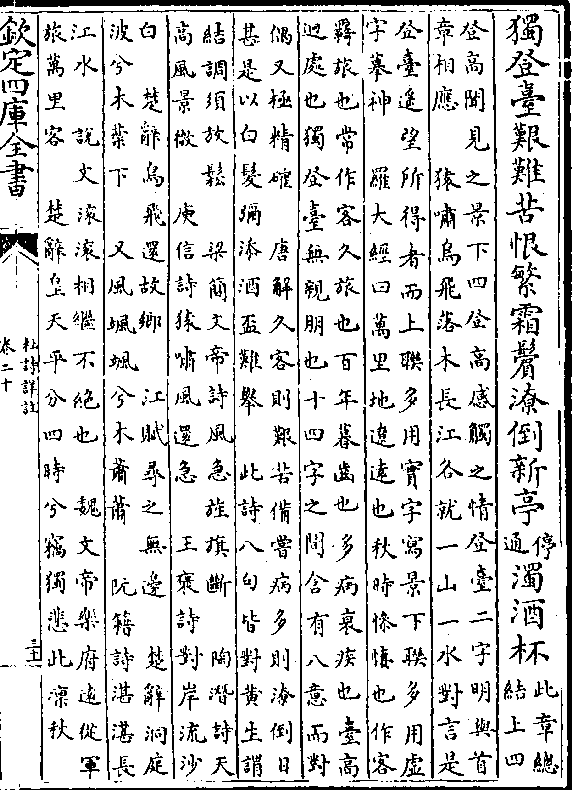 獨登臺艱難苦恨繁霜鬢潦倒新亭停通濁酒杯此章總結上四
登高聞見之景下四登高感觸之情登臺二字明與首
章相應 猿嘯鳥飛落木長江各就一山一水對言是
登臺遙望所得者而上聯多用實字寫景下聯多用虛
字摹神 羅大經曰萬里地遼遠也秋時慘悽也作客
羇旅也常作客久旅也百年暮齒也多病衰疾也臺高
迥處也獨登臺無親朋也十四字之間含有八意而對
偶又極精確 唐解久客則艱苦備嘗病多則潦倒日
甚是以白髮彌添酒盃難舉 此詩八句皆對黃生謂
結調須放鬆 梁簡文帝詩風急旌旗斷 陶潛詩天
高風景徹 庾信詩猿嘯風還急 王褒詩對岸流沙
白 楚辭鳥飛還故鄉 江賦尋之無邊 楚辭洞庭
波兮木葉下 又風颯颯兮木蕭蕭 阮籍詩湛湛長
江水 說文滾滾相繼不絕也 魏文帝樂府遠從軍
旅萬里客 楚辭皇天平分四時兮竊獨悲此凜秋
欽定四庫全書
杜詩詳註
卷二十